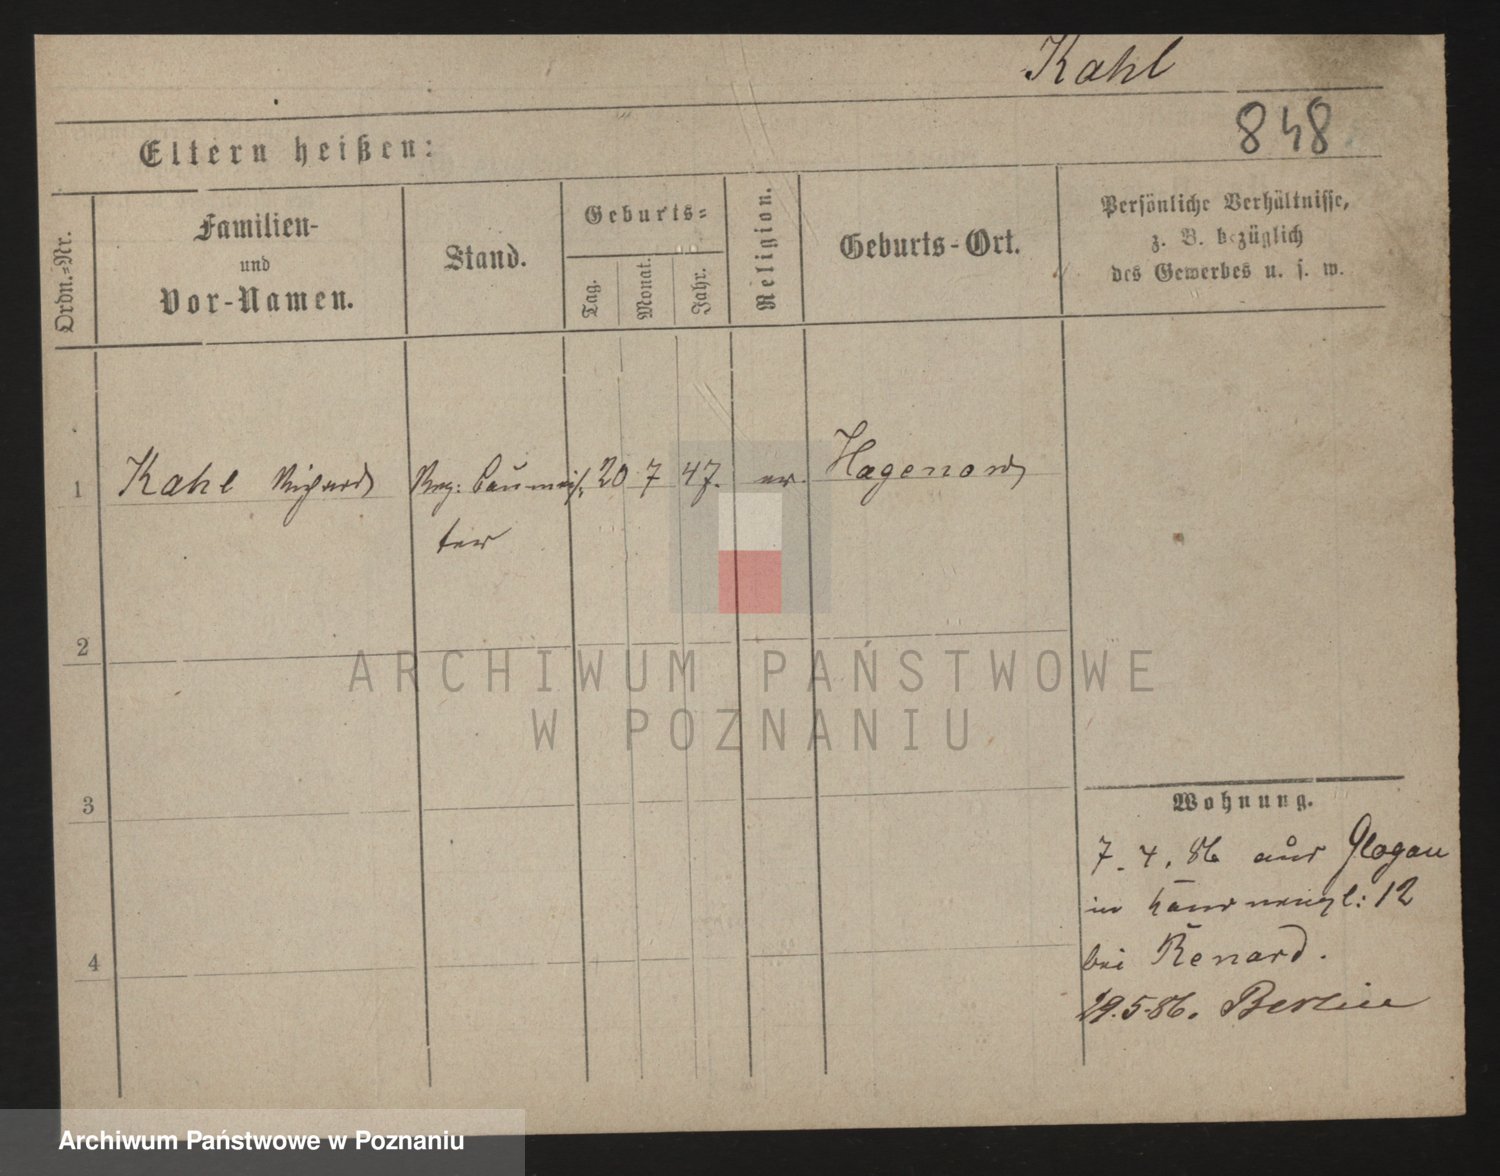 Kahl
848
Eltern heißen:
Ordn.=Nr.
Familien-
und
Vor-Namen.
Stand.
Geburts=
Tag.
Monat.
Jahr.
Religion.
Geburts-Ort.
Persönliche Verhältnisse,
z. B. bezüglich
des Gewerbes u. s. w.
1 Kahl Richard Reg: Baumeis, 20 7 47. ev. Hagenow
ter
2
3
4
Wohnung.
7. 4. 86 aus Glogau
in 12
bei Renard.
29.5.86. Berlin
ARCHIWUM PAŃSTWOWE
W POZNANIU
Archiwum Państwowe w Poznaniu